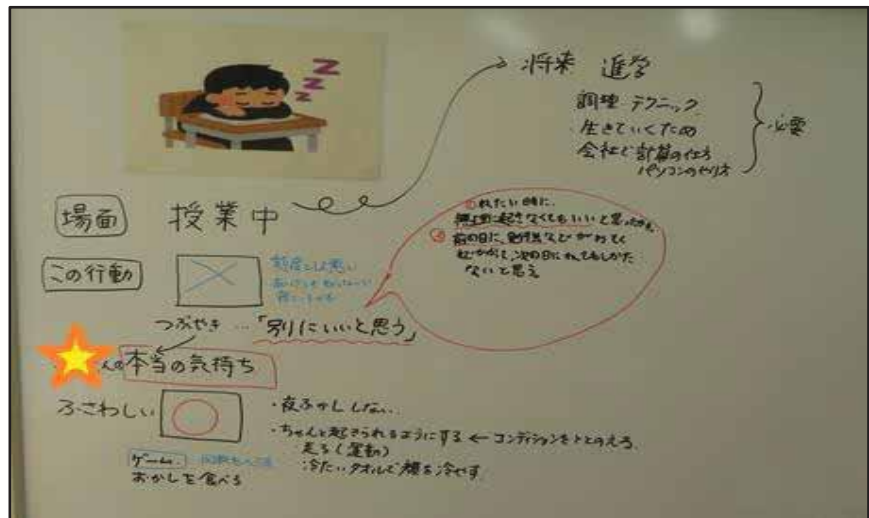 将来 進学
調理 テクニック
生きていくため
会社で計算の仕方
パソコンのやり方
必要
場面 授業中
①ねたい時に、
無理に起きなくてもいいと思ったから
② 前の日に、勉強などが
次の日にねてもしかた
ないと思う
この行動
つぶやき…「別にいいと思う」
本当の気持ち
ふさわしい
・夜ふかししない。
・ちゃんと起きられるようにする ← コンディションをととのえる
走る(運動)
冷たいタオルで顔を冷やす
ゲーム
おかしを食べる